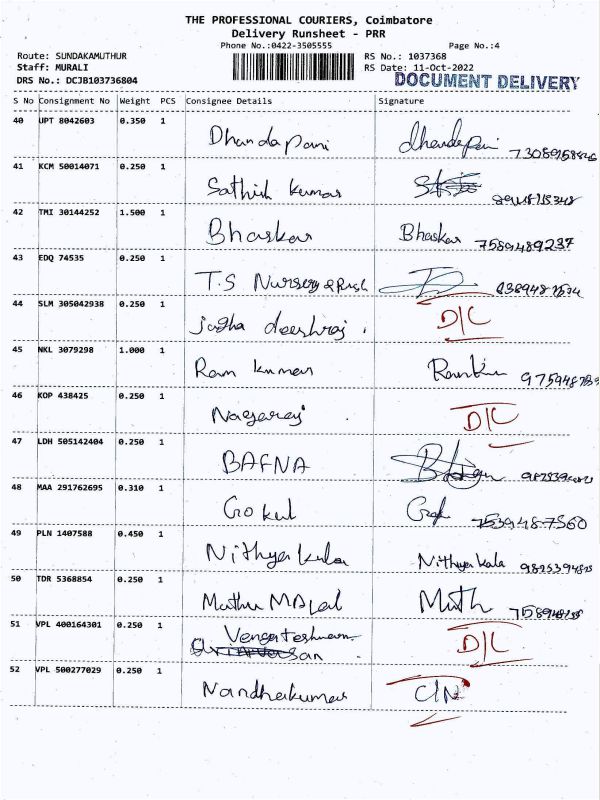 THE PROFESSIONAL COURIERS, Coimbatore
Delivery Runsheet - PRR
Phone No.:0422-3505555 Page No.:4
Route: SUNDAKAMUTHUR RS No.: 1037368
Staff: MURALI RS Date: 11-Oct-2022
DRS No.: DCJB103736804 DOCUMENT DELIVERY
S No Consignment No Weight PCS Consignee Details Signature
40 UPT 8042603 0.350 1
Dhandapani dhandapani
41 KCM 50014071 0.250 1
Sathish kumar
42 TMI 30144252 1.500 1
Bhaskar Bhaskar 7589489237
43 EDQ 74535 0.250 1
T.S Nursery &
44 SLM 305042938 0.250 1
D/C
45 NKL 3079298 1.000 1
Ram kumar
46 KOP 438425 0.250 1
Nagaraj D/C
47 LDH 505142404 0.250 1
BAFNA
48 MAA 291762695 0.310 1
Gokul 7539487560
49 PLN 1407588 0.450 1
Nithya kala Nithya kala
50 TDR 5368854 0.250 1
Muthu Muth
51 VPL 400164301 0.250 1
D/C
52 VPL 500277029 0.250 1
Nandhakumar